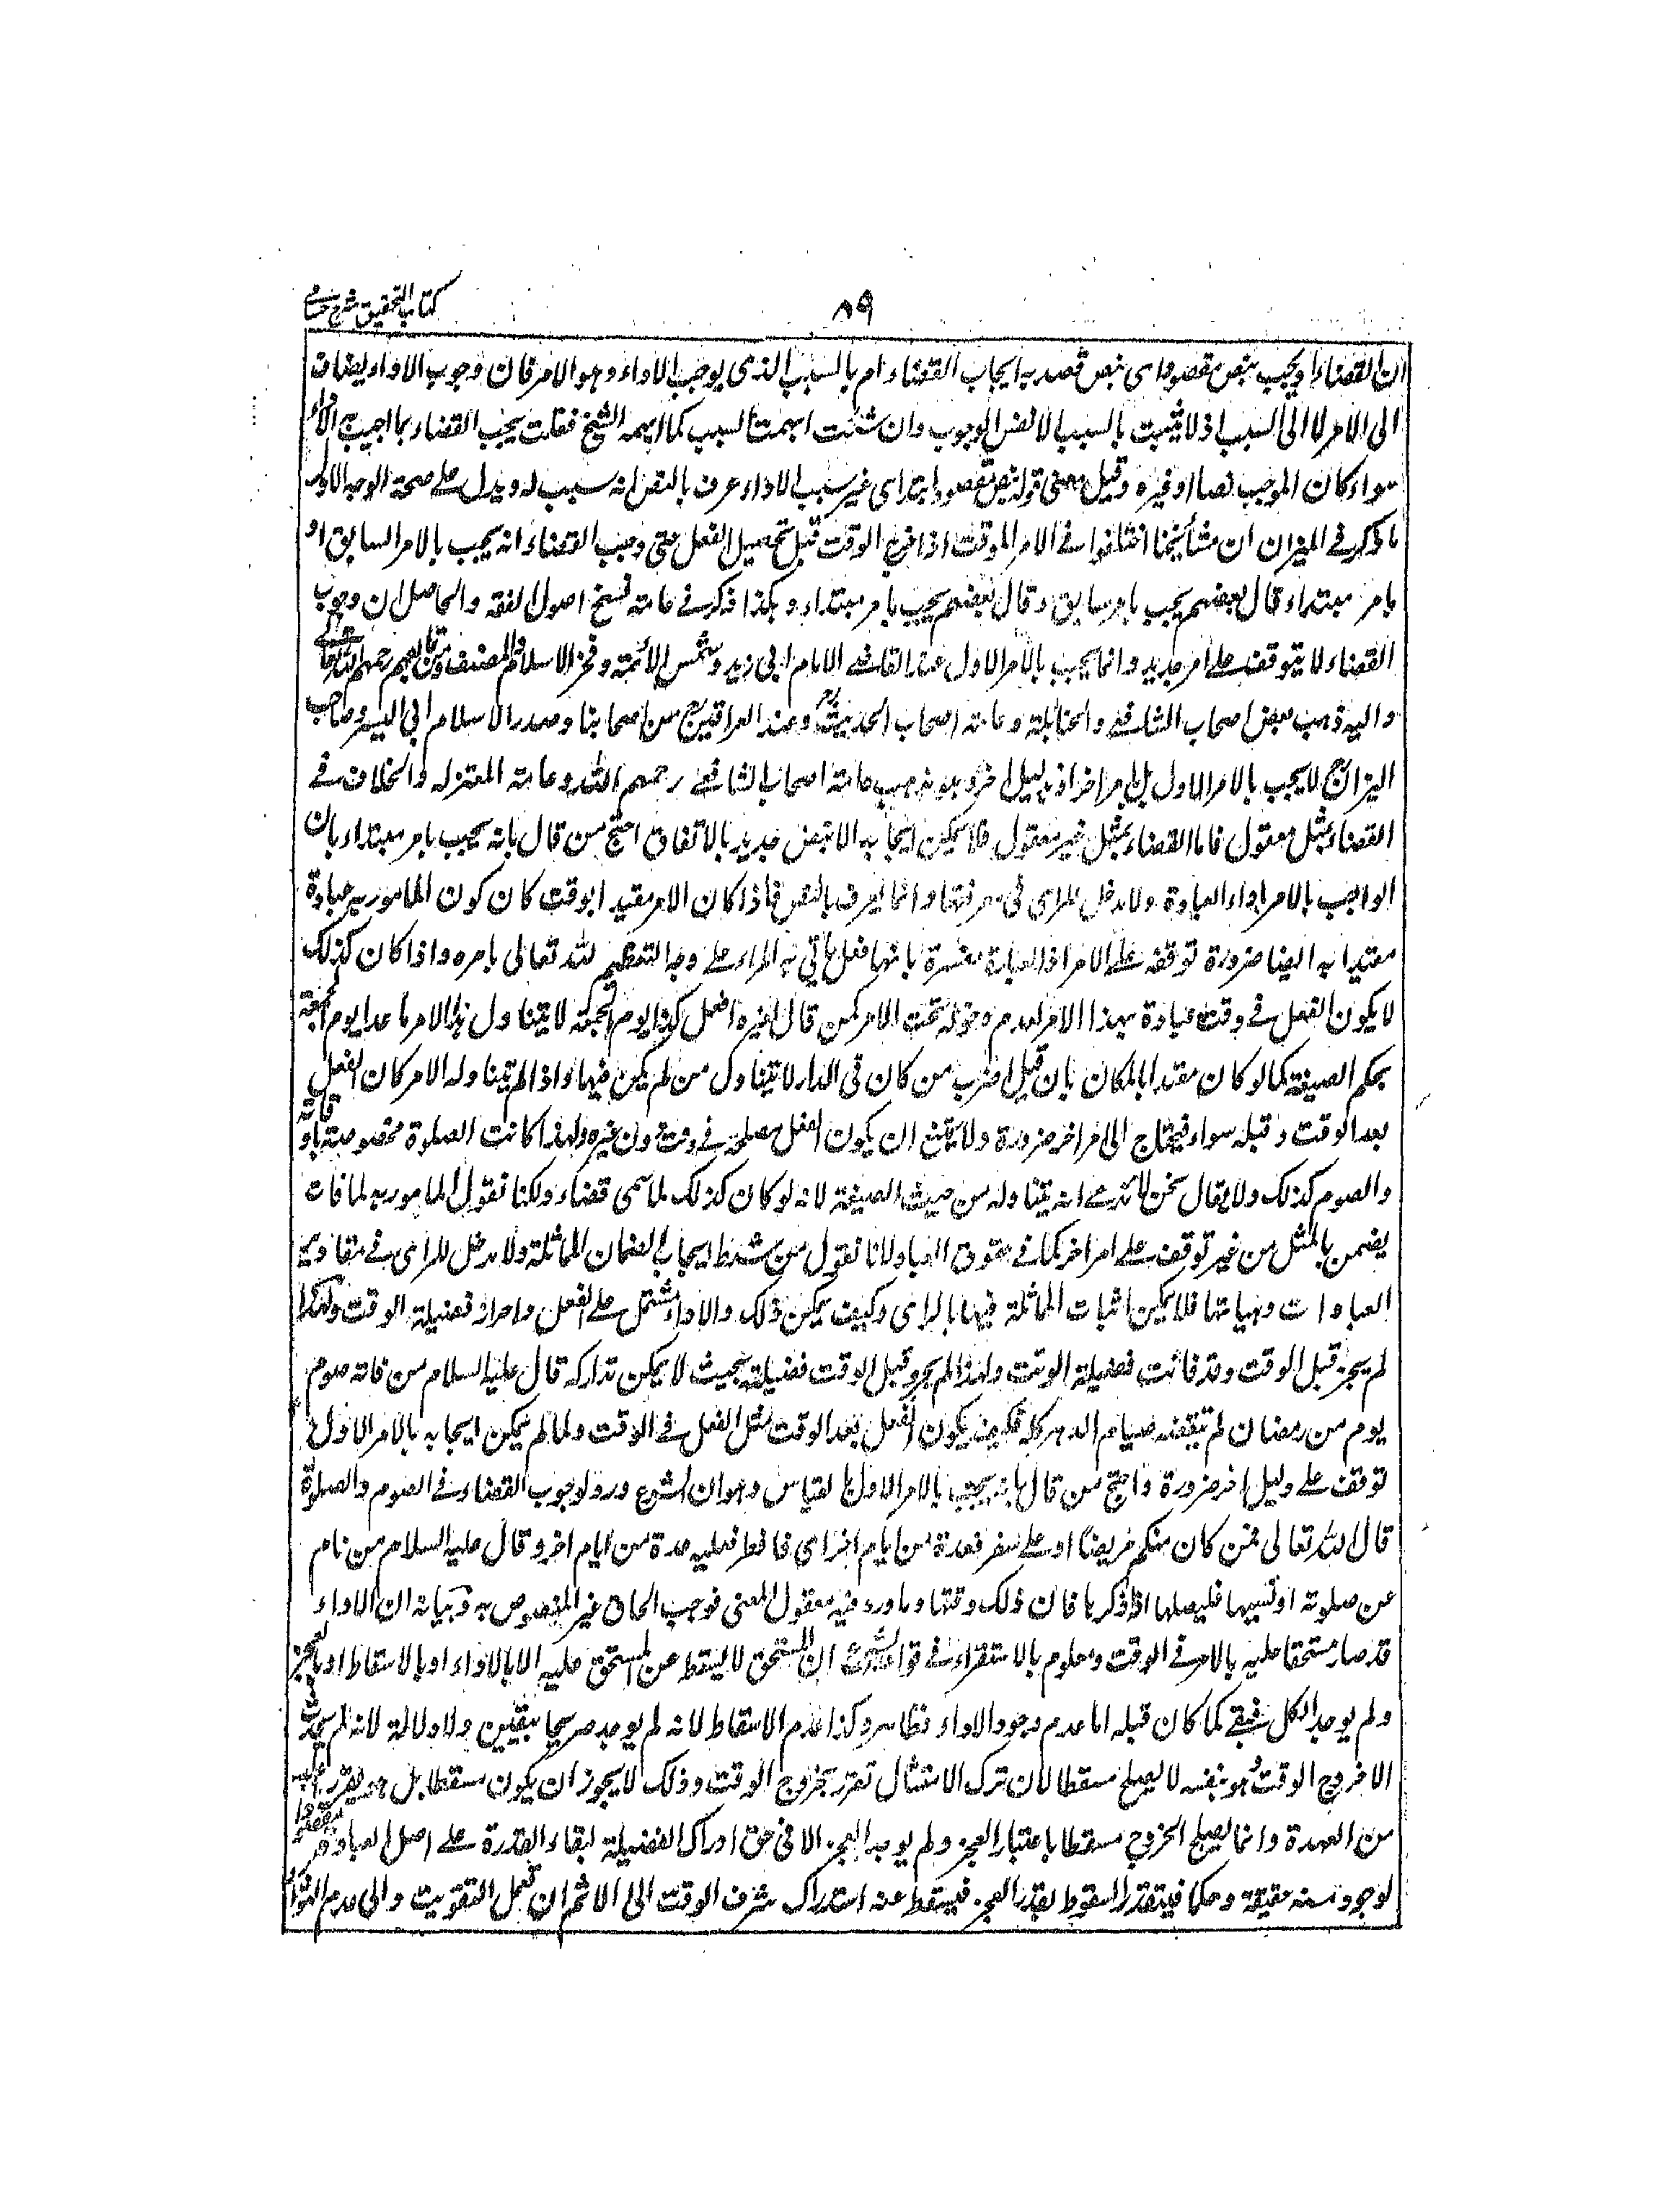 كتاب التحقيق شرح حسامي
٨٩
ان القضاء اويجب بنص مقصود اى بنص قصد به ايجاب القضاء ام بالسبب الذى يوجب الاداء وهو الامر فان وجوب الاداء يضاف
الى الامر لا الى السبب اذ لا يثبت بالسبب الا نفس الوجوب وان شئت ابهمت السبب كما ابهمه الشيخ فقلت يجب القضاء بما اجيب به الاداء
سواء كان الموجب نصا او غيره وقيل معنى قوله بنص مقصود ابتداء اى غير سبب الاداء عرف بالنص انه سبب له ويدل على صحة الوجه الاول
ما ذكر في الميزان ان مشائخنا اختلفوا في الامر الموقت اذا خرج الوقت قبل تحصيل الفعل حتى وجب القضاء انه يجب بالامر السابق او
بامر مبتداء قال بعضهم يجب بامر سابق وقال بعضهم يجب بامر مبتداء وهكذا ذكر في عامة نسخ اصول الفقه والحاصل ان وجوب
القضاء لا يتوقف على امر جديد وانما يجب بالامر الاول عند القاضي الامام ابى زيد وشمس الائمة وفخر الاسلام والمصنف ومن تابعهم رحمهم الله تعالى
واليه ذهب بعض اصحاب الشافعي والحنابلة وعامة اصحاب الحديث رح وعند العراقيين من اصحابنا وصدر الاسلام ابى اليسر وصاحب
الميزان رح لا يجب بالامر الاول بل بامر اخر او بدليل اخر وهو مذهب عامة اصحاب الشافعي رحمهم الله وعامة المعتزلة والخلاف في
القضاء بمثل معقول فاما القضاء بمثل غير معقول فلا يمكن ايجابه الا بنص جديد بالاتفاق احتج من قال بانه يجب بامر مبتداء بان
الواجب بالامر اداء العبادة ولا مدخل للراى في معرفتها وانما يعرف بالنص فاذا كان الامر مقيدا بوقت كان كون المامور به عبادة
مقيدا به ايضا ضرورة توقفه على الامر اذ العبادة مفسرة بانها فعل ياتي به المراء على وجه التعظيم لله تعالى بامره واذا كان كذلك
لا يكون الفعل في وقت عبادة بهذا الامر لعدم دخوله تحت الامر كمن قال لغيره افعل كذا يوم الجمعة لا يتناول هذا الامر ما عدا يوم الجمعة
بحكم الصيغة كما لو كان مقيدا بالمكان بان قيل اضرب من كان في الدار لا يتناول من لم يكن فيها واذا لم يتناوله الامر كان الفعل
بعد الوقت وقبله سواء فيحتاج الى امر اخر ضرورة ولا يمتنع ان يكون الفعل مصلحة في وقت دون غيره ولهذا كانت الصلوة مخصوصة باوقاته
والصوم كذلك ولا يقال نحن لا ندعي انه يتناوله من حيث الصيغة لانه لو كان كذلك لما سمى قضاء ولكنا نقول المامور به لما فات
يضمن بالمثل من غير توقف على امر اخر كما في حقوق العباد لانا نقول من شرط ايجاب الضمان المماثلة ولا مدخل للراى في مقادير
العبادات وهيأتها فلا يمكن اثبات المماثلة فيها بالراى وكيف يمكن ذلك والاداء مشتمل على الفعل واحراز فضيلة الوقت ولهذا
لم يجز قبل الوقت وقد فاتت فضيلة الوقت ولهذا لم يجز وقبل الوقت فضيلة بحيث لا يمكن تداركه قال عليه السلام من فاته صوم
يوم من رمضان لم تقضه صيام الدهر كله فكيف يكون الفعل بعد الوقت مثل الفعل في الوقت ولما لم يمكن ايجابه بالامر الاول
توقف على دليل اخر ضرورة واحتج من قال بانه يجب بالامر الاول بالقياس وهو ان الشرع ورد لوجوب القضاء في الصوم والصلوة
قال الله تعالى فمن كان منكم مريضا او على سفر فعدة من ايام اخر اى فافطر فعليه عدة من ايام اخر وقال عليه السلام من نام
عن صلوته او نسيها فليصلها اذا ذكرها فان ذلك وقتها وما ورد فيه معقول المعنى فوجب الحاق غير المنصوص به وبيانه ان الاداء
قد صار مستحقا عليه بالامر في الوقت ومعلوم بالاستقراء في قواعد الشرع ان المستحق لا يسقط عن المستحق عليه الا بالاداء او بالاسقاط او بالعجز
ولم يوجد الكل فبقي كما كان قبله اما عدم وجود الاداء فظاهر وكذا عدم الاسقاط لانه لم يوجد صريحا بيقين ولا دلالة لانه لم يحدث
الا خروج الوقت وهو بنفسه لا يصلح مسقطا لان ترك الامتثال تقرر بخروج الوقت وذلك لا يجوز ان يكون مسقطا بل هو يقرر
من العهدة وانما يصلح الخروج مسقطا باعتبار العجز ولم يوجد العجز الا في حق ادراك الفضيلة لبقاء القدرة على اصل العبادة
لوجوده منه حقيقة وحكما فيتقدر السقوط بقدر العجز فيسقط عنه استدراك شرف الوقت الى الاثم ان تعمل التفويت والى عدم الثواب